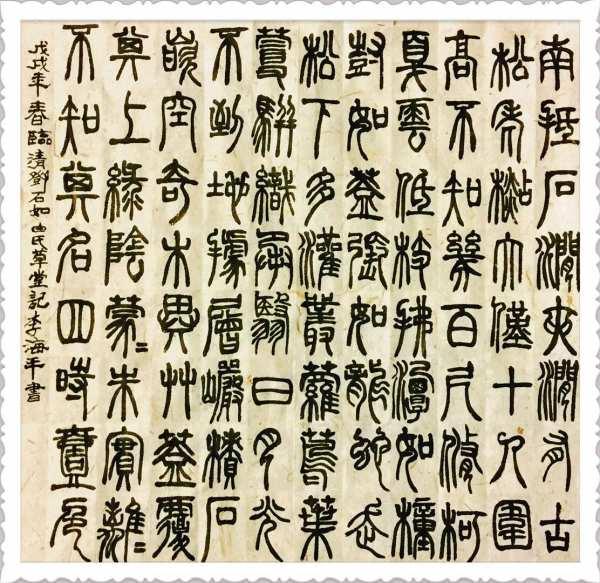 南抵石澗夾澗有古
松老杉大僅十人圍
高不知幾百尺脩柯
戛雲低枝拂潭如橦
尌如蓋張如龍蛇走
松下多灌叢蘿蔦葉
蔓駢織承翳日月光
不到地據層巖積石
嵌空奇木異艸蓋覆
其上綠陰蒙〻朱實離〻
不知其名四時壹色
戊戌年春臨清鄧石如白氏草堂記李海平書